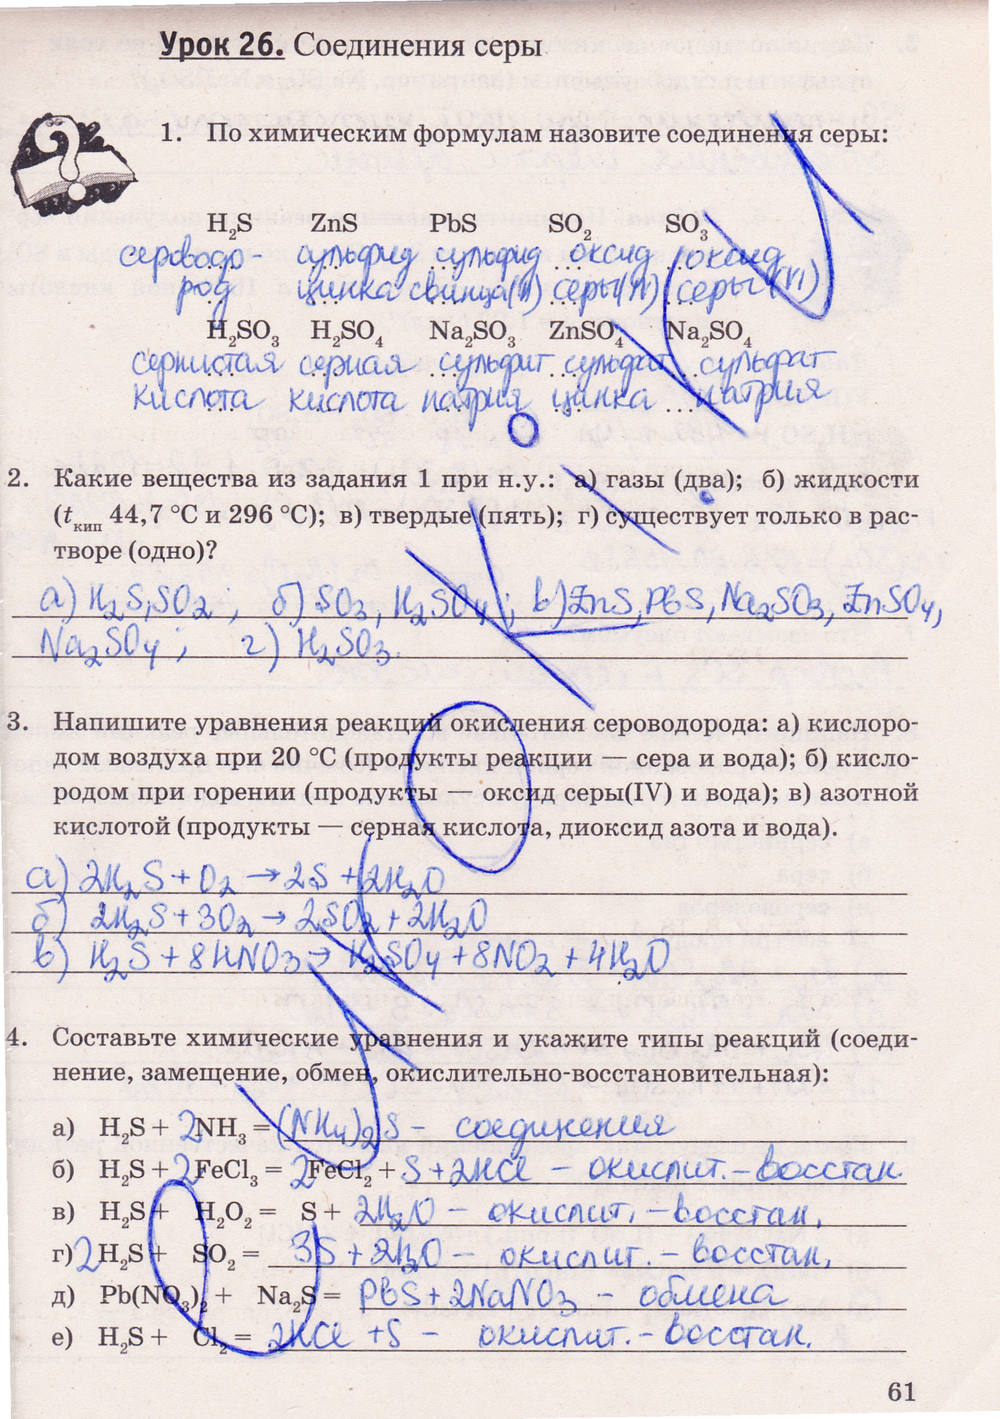 Урок 26. Соединения серы
1. По химическим формулам назовите соединения серы:
H₂S ZnS PbS SO₂ SO₃
сероводо- сульфид сульфид оксид оксид
род цинка свинца(II) серы(IV) серы(VI)
H₂SO₃ H₂SO₄ Na₂SO₃ ZnSO₄ Na₂SO₄
сернистая серная сульфит сульфат сульфат
кислота кислота натрия цинка натрия
2. Какие вещества из задания 1 при н.у.: а) газы (два); б) жидкости
(tкип 44,7 °C и 296 °C); в) твердые (пять); г) существует только в рас-
творе (одно)?
а) H₂S, SO₂; б) SO₃, H₂SO₄; в) ZnS, PbS, Na₂SO₃, ZnSO₄,
Na₂SO₄; г) H₂SO₃.
3. Напишите уравнения реакций окисления сероводорода: а) кислоро-
дом воздуха при 20 °C (продукты реакции — сера и вода); б) кисло-
родом при горении (продукты — оксид серы(IV) и вода); в) азотной
кислотой (продукты — серная кислота, диоксид азота и вода).
а) 2H₂S + O₂ → 2S + 2H₂O
б) 2H₂S + 3O₂ → 2SO₂ + 2H₂O
в) H₂S + 8HNO₃ → H₂SO₄ + 8NO₂ + 4H₂O
4. Составьте химические уравнения и укажите типы реакций (соеди-
нение, замещение, обмен, окислительно-восстановительная):
а) H₂S + 2NH₃ = (NH₄)₂S - соединения
б) H₂S + 2FeCl₃ = 2FeCl₂ + S + 2HCl - окислит.-восстан.
в) H₂S + H₂O₂ = S + 2H₂O - окислит.-восстан.
г) 2H₂S + SO₂ = 3S + 2H₂O - окислит.-восстан.
д) Pb(NO₃)₂ + Na₂S = PbS + 2NaNO₃ - обмена
е) H₂S + Cl₂ = 2HCl + S - окислит.-восстан.
61